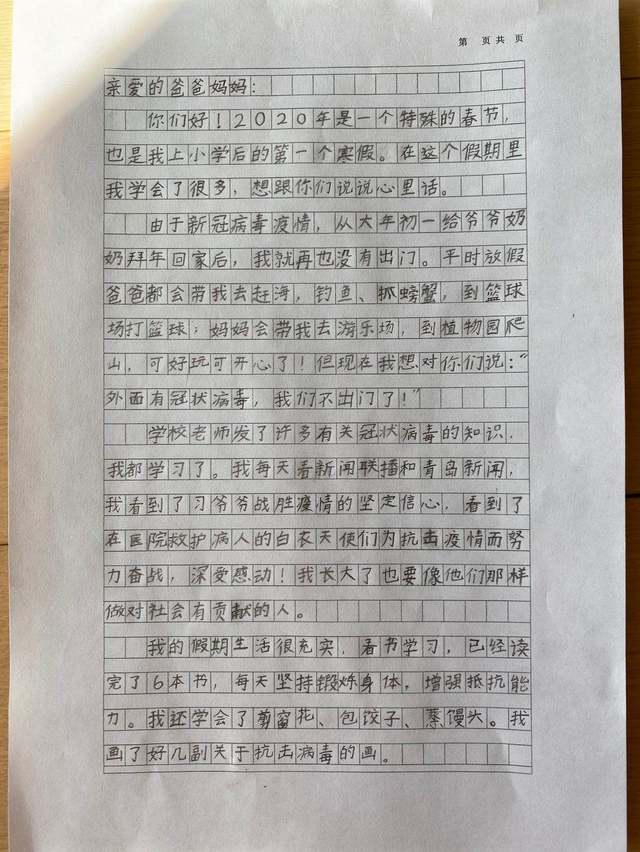 第 页 共 页
亲爱的爸爸妈妈：
你们好！2020年是一个特殊的春节，
也是我上小学后的第一个寒假。在这个假期里
我学会了很多，想跟你们说说心里话。
由于新冠病毒疫情，从大年初一给爷爷奶
奶拜年回家后，我就再也没有出门。平时放假
爸爸都会带我去赶海，钓鱼、抓螃蟹，到篮球
场打篮球；妈妈会带我去游乐场，到植物园爬
山，可好玩可开心了！但现在我想对你们说：“
外面有冠状病毒，我们不出门了！”
学校老师发了许多有关冠状病毒的知识，
我都学习了。我每天看新闻联播和青岛新闻，
我看到了习爷爷战胜疫情的坚定信心，看到了
在医院救护病人的白衣天使们为抗击疫情而努
力奋战，深受感动！我长大了也要像他们那样
做对社会有贡献的人。
我的假期生活很充实，看书学习，已经读
完了6本书，每天坚持锻炼身体，增强抵抗能
力。我还学会了剪窗花、包饺子、蒸馒头。我
画了好几副关于抗击病毒的画。